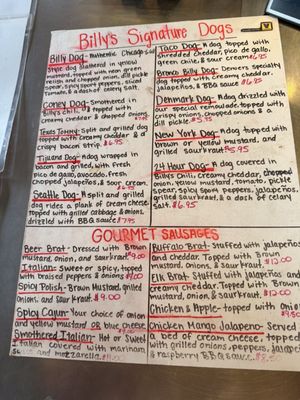 Billy's Signature Dogs
Billy Dog- Authentic Chicago
style dog slathered in yellow
mustard, topped with neon green
relish and chopped onion, dill pickle
spear, sport peppers, sliced
Tomato, & a dash of celery salt.
Coney Dog- Smothered in
Billy's chili, & topped with
creamy cheddar & chopped onions
Texas Tommy- Split and grilled dog
topped with creamy cheddar & a
crispy bacon strip. $6.95
Tijuana Dog- A dog wrapped in
bacon and grilled, with fresh
pico de gallo, avocado, fresh
chopped jalapeños, & sour cream.
Seattle Dog- A split and grilled
dog rides a plank of cream cheese
topped with grilled cabbage & onions,
drizzled with BBQ sauce $7.95
Taco Dog- A dog topped with
shredded cheddar, pico de gallo,
green chile, & sour cream. $6.95
Bronco Billy Dog- Denver's specialty
dog topped with creamy cheddar,
jalapeños, & BBQ sauce $6.95
Denmark Dog- A dog drizzled with
our special remoulade, topped with
crispy onions, chopped onions &
dill pickle $5.95
New York Dog- A dog topped with
brown or yellow mustard, and
grilled sauerkraut $5.95
24 Hour Dog- A dog covered in
Billy's Chili, creamy cheddar, chopped
onion, yellow mustard, tomato, pickle
spear, sport peppers, jalapeños,
grilled sauerkraut, & a dash of celery
Salt. $6.95
GOURMET SAUSAGES
Beer Brat- Dressed with Brown
mustard, onion, and sauerkraut $9.00
Italian- Sweet or spicy, topped
with roasted peppers & onions
Spicy Polish- Brown Mustard, grilled
Onions, and Sauerkraut. $9.00
Spicy Cajun- Your choice of onion
and yellow mustard OR blue cheese
Smothered Italian- Hot or Sweet
Italian covered with marinara
sauce and mozzarella
Buffalo Brat- Stuffed with jalapeños
and cheddar. Topped with Brown
mustard, onions, & Saurkraut. $12.00
Elk Brat- Stuffed with jalapeños and
creamy cheddar. Topped with Brown
mustard, onions, & Saurkraut. $12.00
Chicken & Apple- topped with onions
$9.50
Chicken Mango Jalapeno- Served
a bed of cream cheese, topped
with grilled onions, peppers, jalapeños
& raspberry BBQ sauce